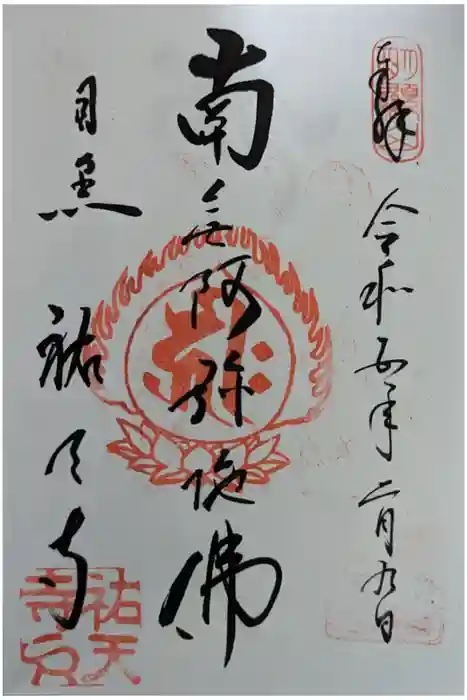 奉拝
令和五年二月九日
南無阿弥陀佛
目黒 祐天寺
祐天寺